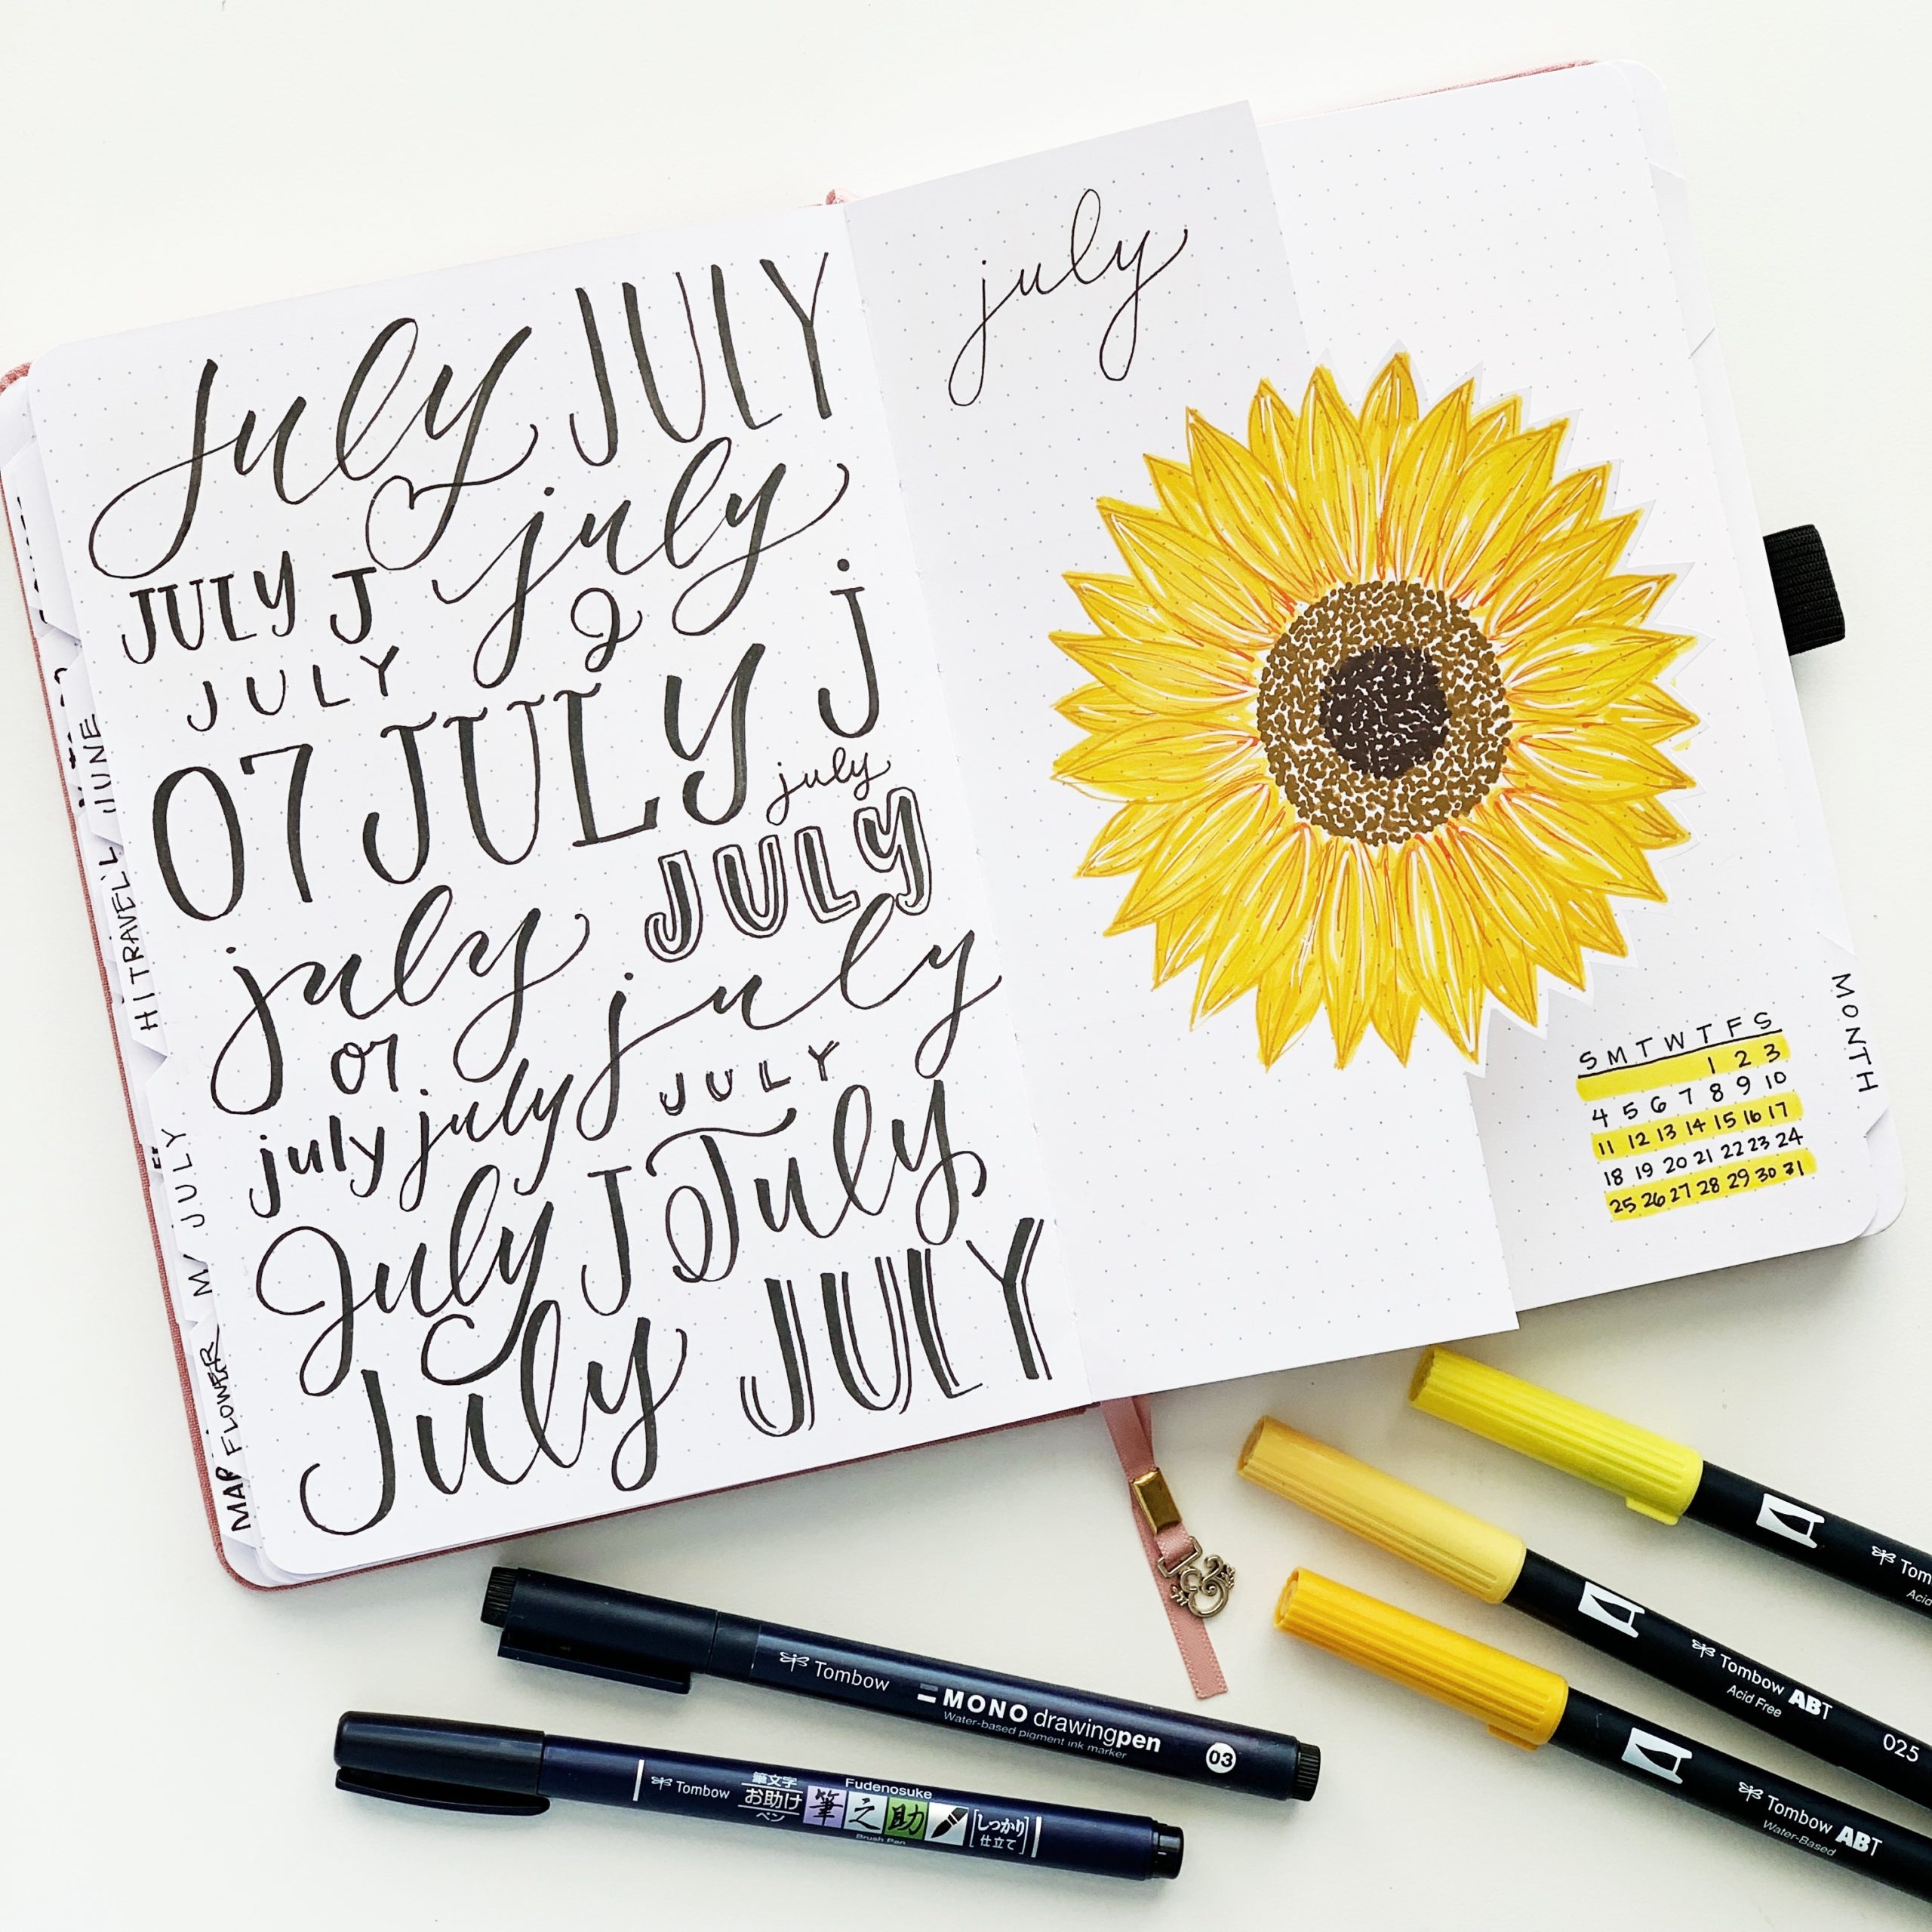 july JULY
july
JULY J
J
JULY
07 JULY j
july
JULY
july
07
july
JULY
july july
July J July
July JULY
JUNE
TRAVEL
JULY
FLOWER
MAP
july
S M T W T F S
1 2 3
4 5 6 7 8 9 10
11 12 13 14 15 16 17
18 19 20 21 22 23 24
25 26 27 28 29 30 31
MONTH
Tombow MONO drawingpen 03
Water-based pigment ink marker
Tombow 筆文字 お助け ペン Fudenosuke 筆之助 しっかり 仕立て
Brush Pen
Tombow ABT 025
Acid Free
Tombow ABT
Water-Based